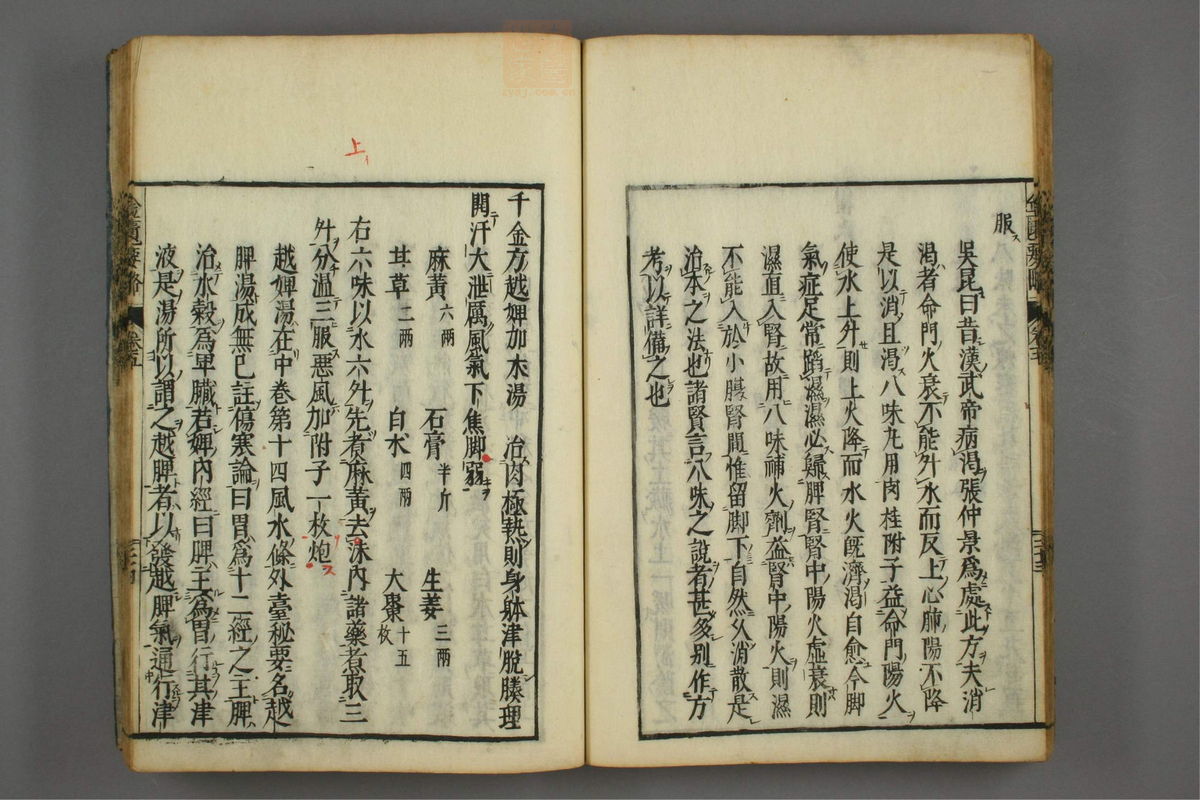 服ス
吳昆曰昔漢武帝病渴張仲景爲處此方夫消
渴者命門火衰不能升水而反上心肺陽不降
是以消且渴八味丸用肉桂附子益命門陽火
使水上升則上火降而水火旣濟渴自愈今脚
氣症足常蹈濕濕必歸脾腎腎中陽火虛衰則
濕直入腎故用八味補火劑益腎中陽火則濕
不能入於小膓腎間惟留脚下自然久消散是
治本之法也諸賢言八味之說者甚多別作方
考以詳備之也
千金方越婢加朮湯 治肉極熱則身躰津脫腠理
開汗大泄厲風氣下焦脚弱
麻黃六兩 石膏半斤 生姜三兩
甘草二兩 白朮四兩 大棗十五枚
右六味以水六升先煮麻黃去沫內諸藥煮取三
升分溫三服惡風加附子一枚炮
越婢湯在中卷第十四風水條外臺秘要名越
脾湯成無己註傷寒論曰胃爲十二經之主脾
治水穀爲卑臟若婢內經曰脾主爲胃行其津
液是湯所以謂之越脾者以發越脾氣通行津
上
金匱要略 卷五
金匱要略 卷五